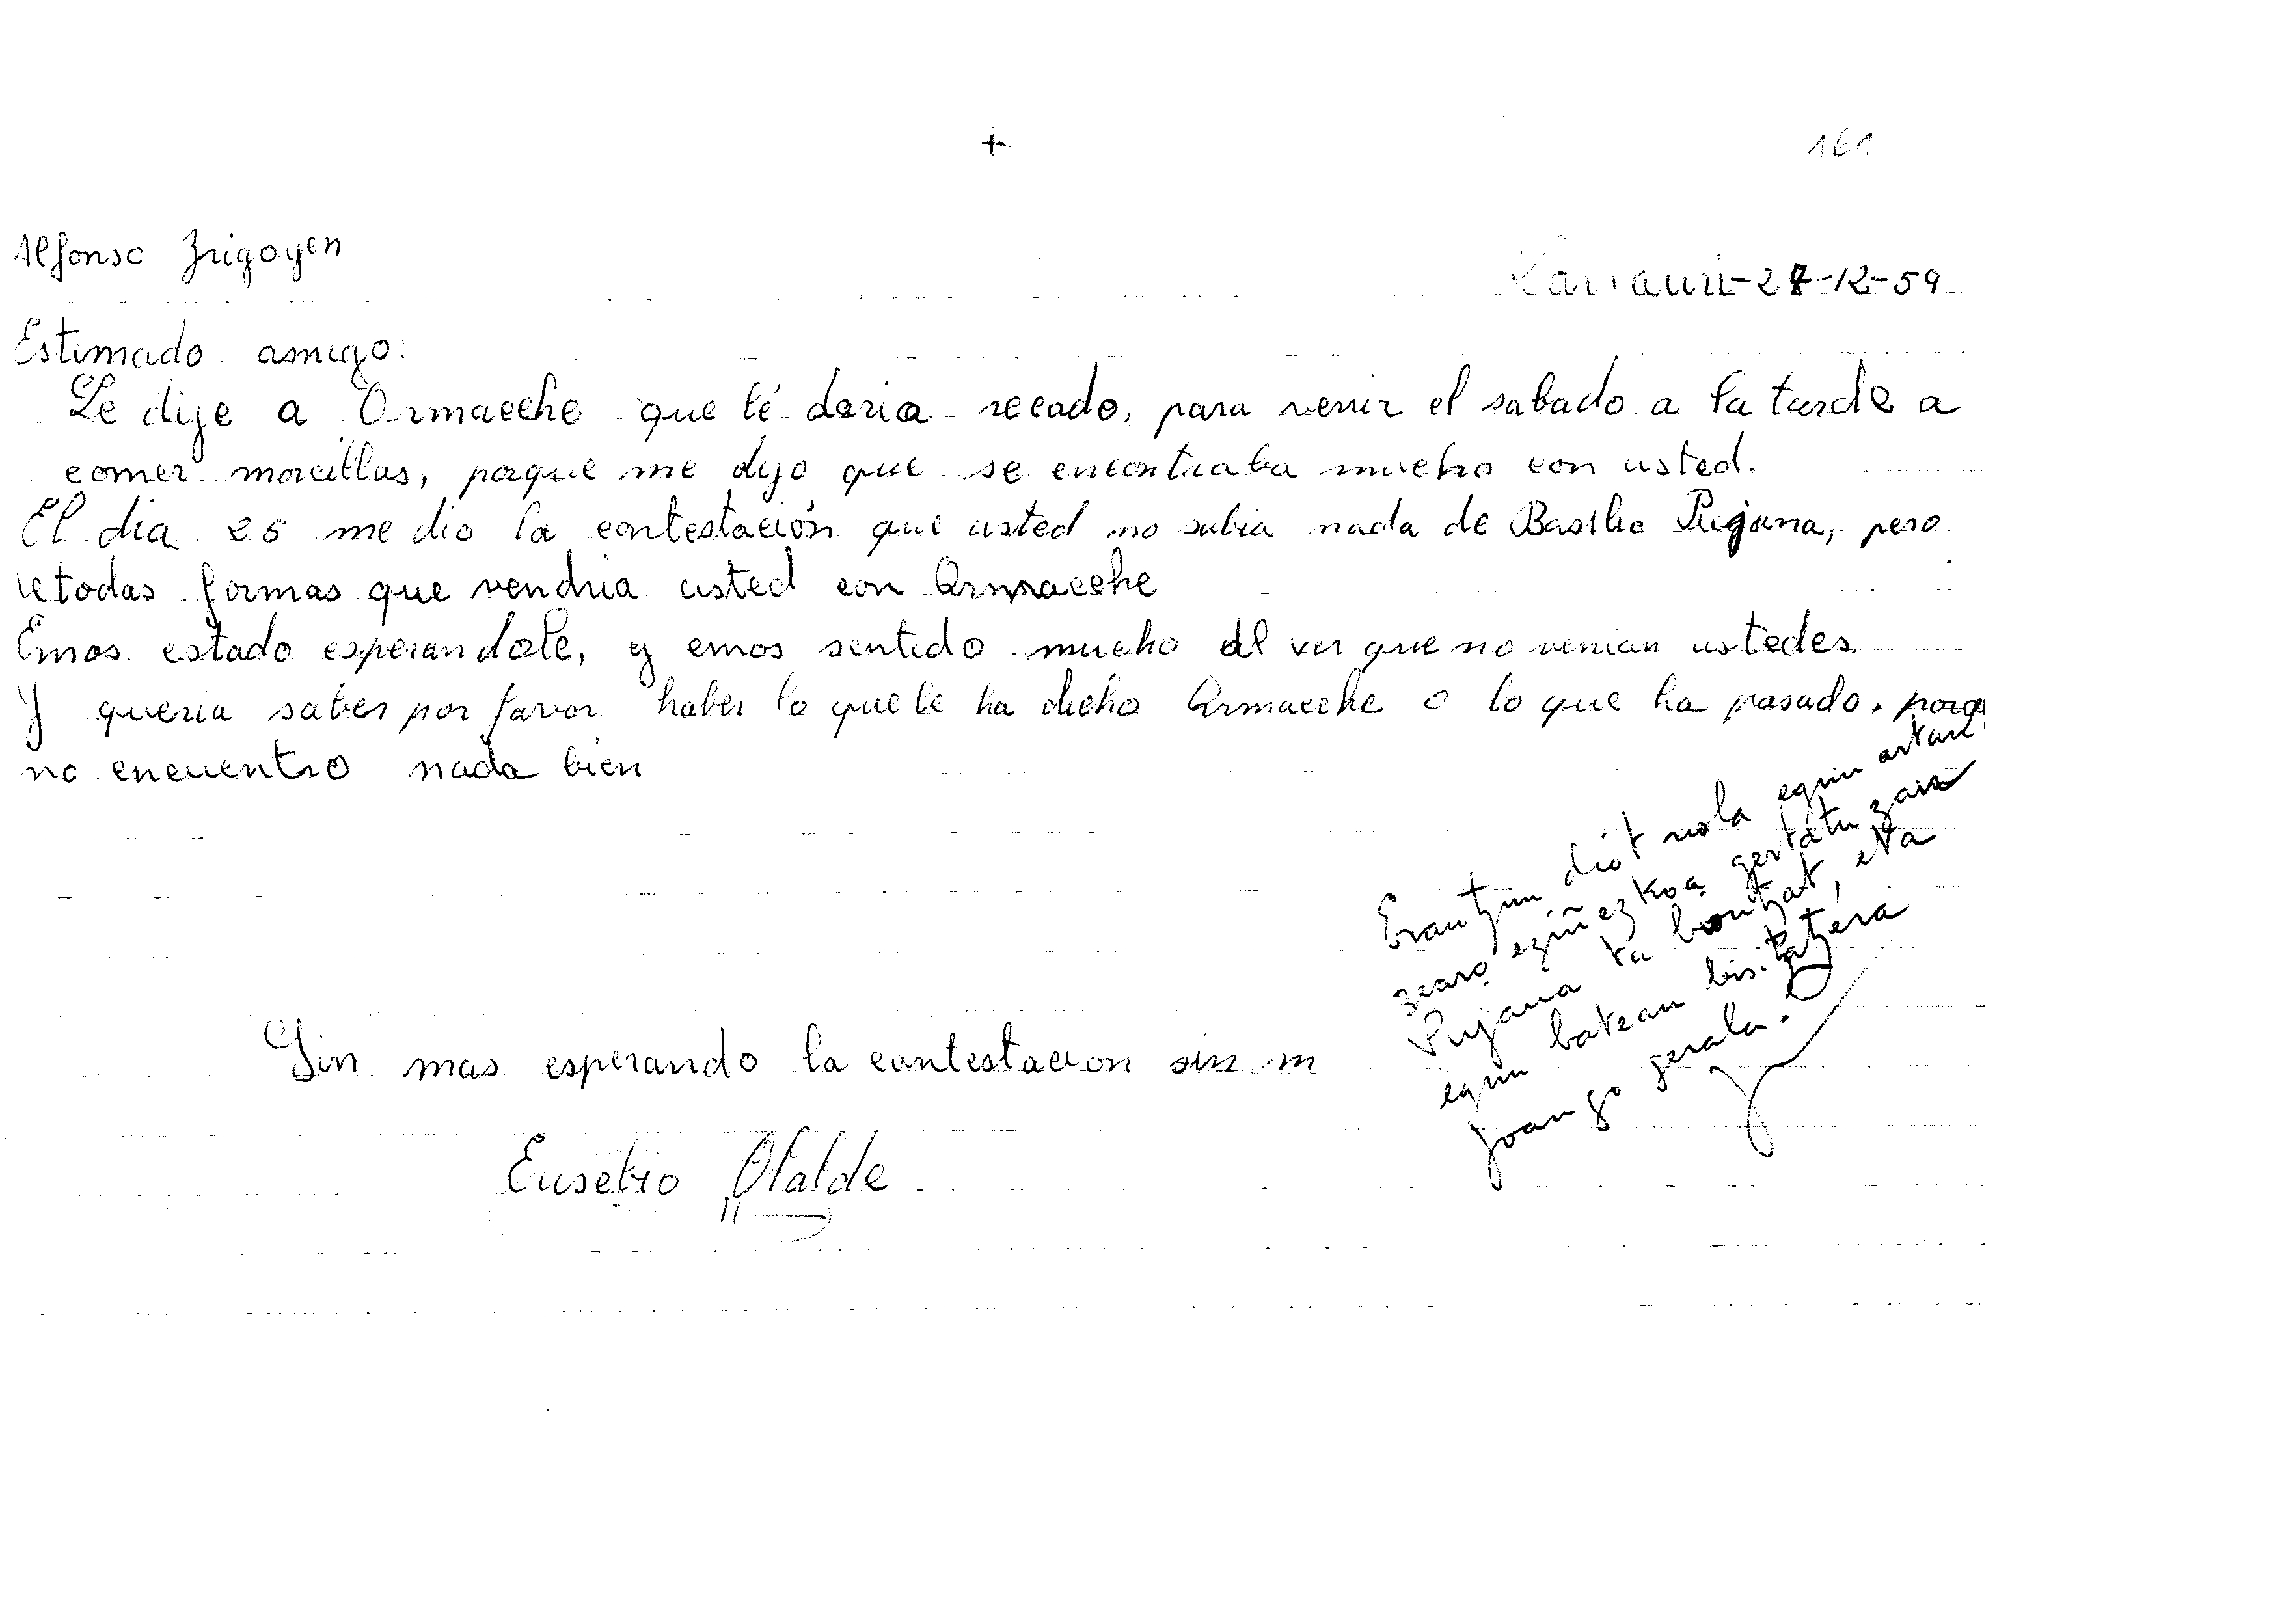 +
161
Alfonso Irigoyen
Larrauri-28-12-59
Estimado amigo:
Le dije a Ormaeche que lé daria recado, para venir el sabado a la tarde a
comer morcillas, porque me dijo que se encontraba mucho con usted.
El dia 25 me dio la contestación que usted no sabia nada de Basilio Pujana, pero
de todas formas que vendria usted con Ormaeche
Emos estado esperandole, y emos sentido mucho al ver que no venian ustedes
Y queria saber por favor haber lo que le ha dicho Ormaeche o lo que ha pasado. porq
no encuentro nada bien
Sin mas esperando la contestacion sin m
Eusebio Olalde
Erantzun diot nola egun artan
zearo eziñezkoa gertatu zaion
Pujana ta biontzat, eta
egun batean bisitatzera
joango gerala.